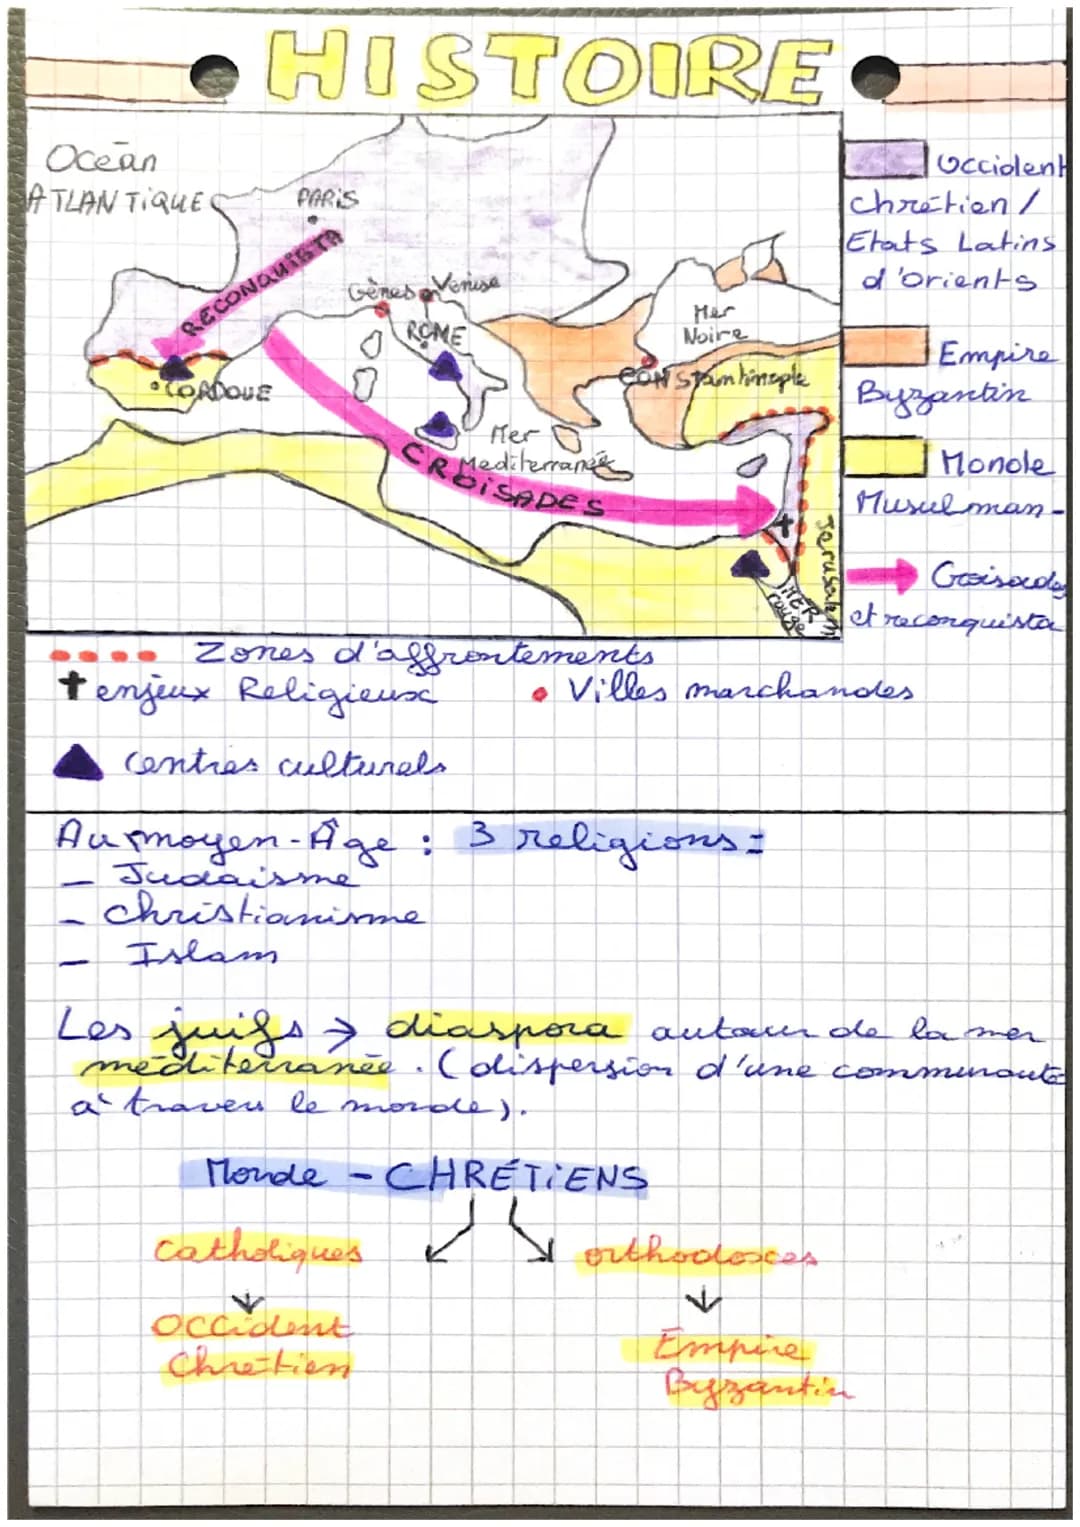 HISTOIRE
Océan
ATLANTIQUE
PARIS
RECONQUISTA
Gènes
Venise
ROME
CORDOUE
Mer
Noire
CONStantinople
Mer
Mediterranée
CROISADES
Jerusalem
MER
rouge
Occident
Chrétien /
Etats Latins
d'Orients
Empire
Byzantin
Monde
Musulman-
Croisades
et reconquista
Zones d'affrontements
enjeux Religieux
Villes marchandes
centres culturels
Au moyen-Âge : 3 religions =
- Judaisme
- Christianisme
- Islam
Les juifs → diaspora autour de la mer
méditerranée. (dispersion d'une communauté
à travers le monde).
Monde - CHRÉTIENS
Catholiques
orthodoxes
Occident
Chrétien
Empire
Byzantin